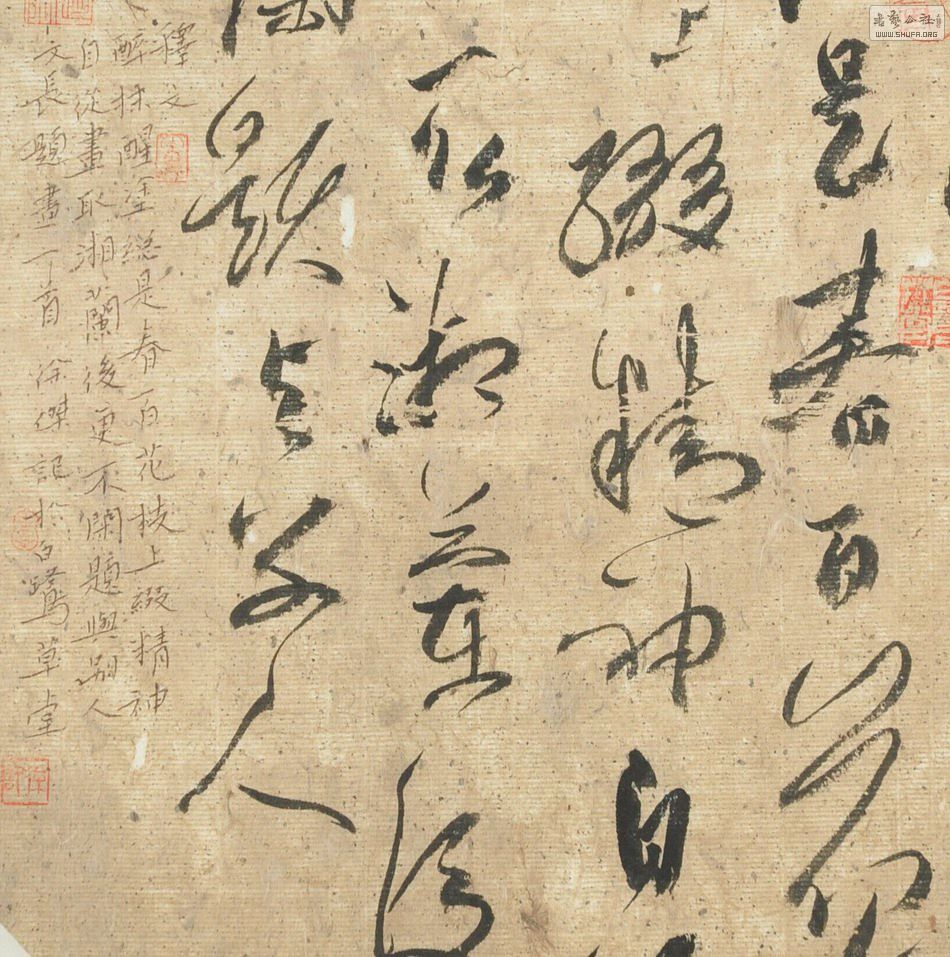 是春百花
上綴精神自
取湘蘭後
題與別人
釋文
醉抹醒塗總是春百花枝上綴精神
自從畫取湘蘭後更不閑題與別人
文長題畫一首 徐傑記於白鷺草堂
書藝公社
WWW.SHUFA.ORG